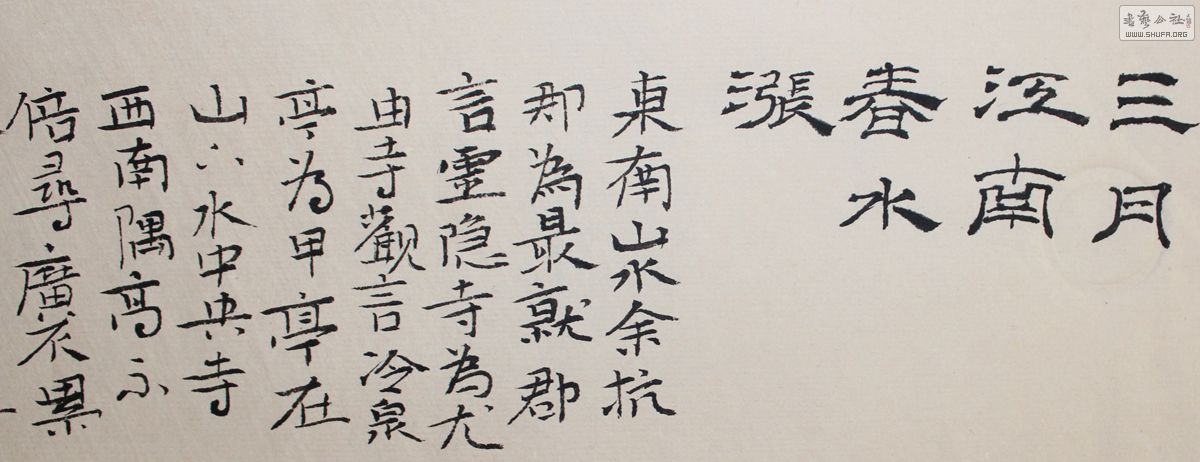 三月
江南
春水
漲
東南山水余抗
郡為最就郡
言靈隐寺為尤
由寺觀言冷泉
亭為甲亭在
山下水中央寺
西南隅高不
倍尋廣不累
書藝公社
WWW.SHUFA.ORG